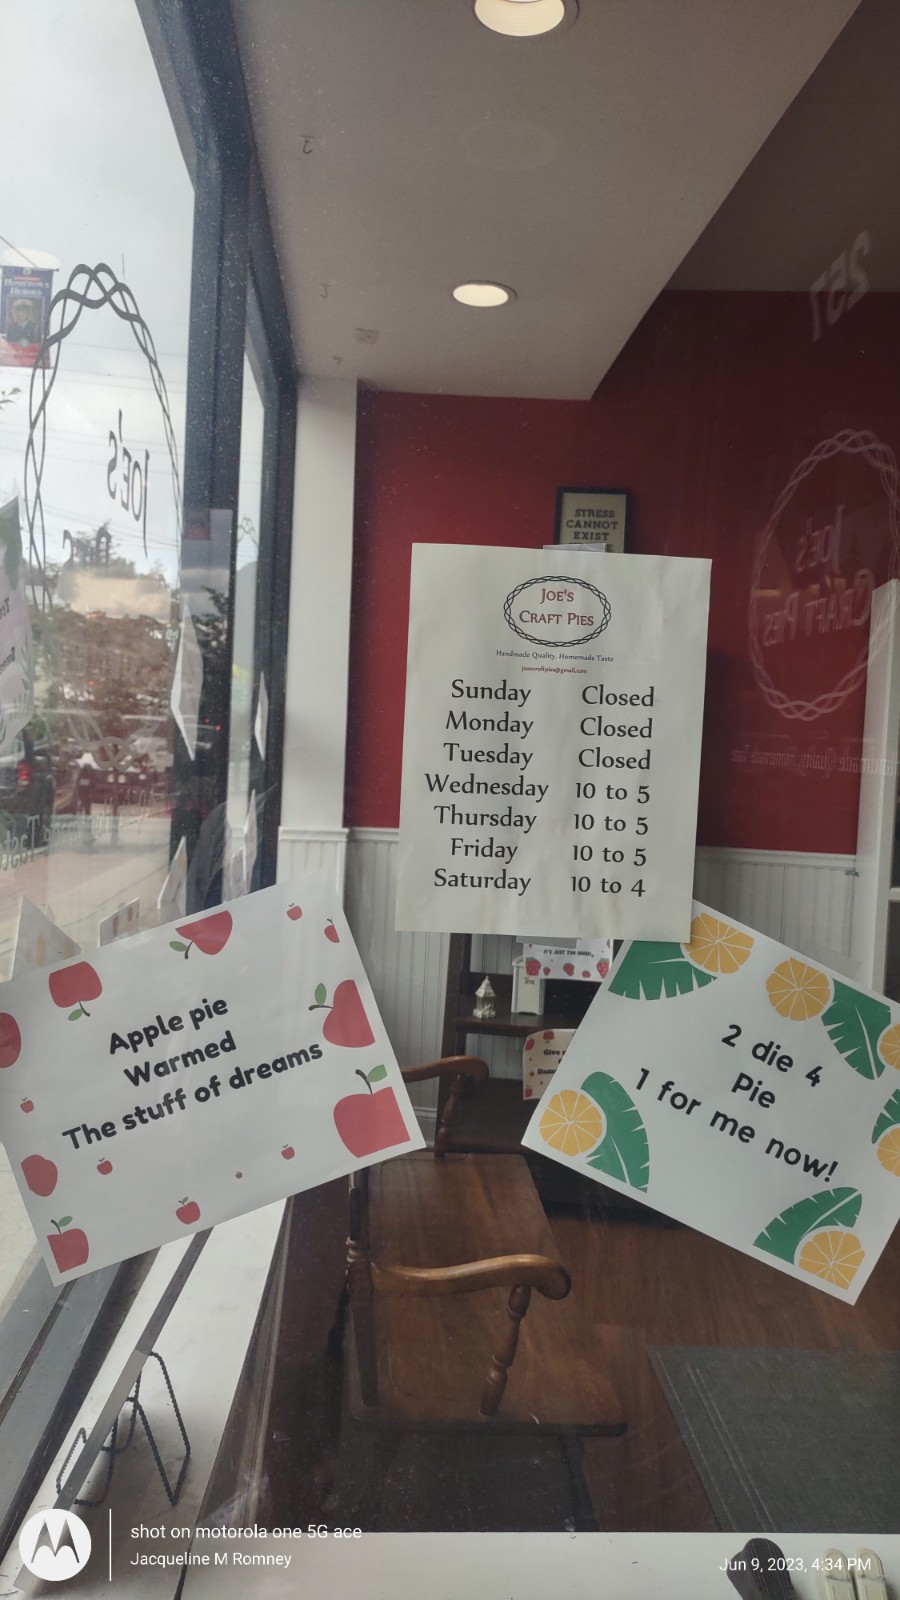 HOMETOWN
HEROES
257
JOE'S
STRESS
CANNOT
EXIST
JOE'S
CRAFT PIES
JOE'S
CRAFT PIES
Handmade Quality, Homemade Taste
joescraftpies@gmail.com
Sunday Closed
Monday Closed
Tuesday Closed
Wednesday 10 to 5
Thursday 10 to 5
Friday 10 to 5
Saturday 10 to 4
Apple pie
Warmed
The stuff of dreams
2 die 4
Pie
1 for me now!
shot on motorola one 5G ace
Jacqueline M Romney
Jun 9, 2023, 4:34 PM